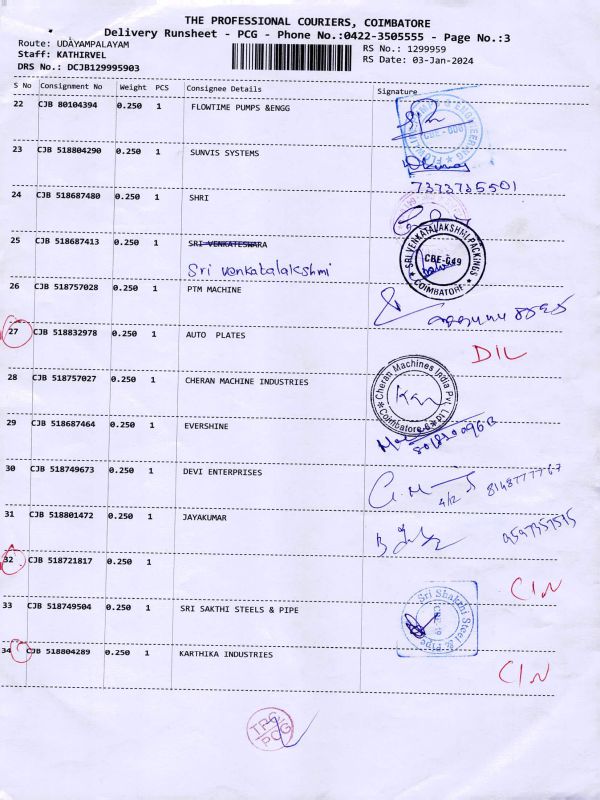 THE PROFESSIONAL COURIERS, COIMBATORE
Delivery Runsheet - PCG - Phone No.:0422-3505555 - Page No.:3
Route: UDAYAMPALAYAM
RS No.: 1299959
Staff: KATHIRVEL
RS Date: 03-Jan-2024
DRS No.: DCJB129995903
S No Consignment No Weight PCS Consignee Details Signature
22 CJB 80104394 0.250 1 FLOWTIME PUMPS &ENGG
23 CJB 518804290 0.250 1 SUNVIS SYSTEMS
7373735501
24 CJB 518687480 0.250 1 SHRI
25 CJB 518687413 0.250 1 SRI VENKATESWARA
Sri venkatalakshmi
SRI VENKATALAKSHMI PACKINGS
CBE-049
COIMBATORE
26 CJB 518757028 0.250 1 PTM MACHINE
27 CJB 518832978 0.250 1 AUTO PLATES DIL
28 CJB 518757027 0.250 1 CHERAN MACHINE INDUSTRIES
Cheran Machines India Pvt. Ltd
Coimbatore-6
29 CJB 518687464 0.250 1 EVERSHINE
30 CJB 518749673 0.250 1 DEVI ENTERPRISES
31 CJB 518801472 0.250 1 JAYAKUMAR
32 CJB 518721817 0.250 1 CIN
33 CJB 518749504 0.250 1 SRI SAKTHI STEELS & PIPE
Sri Shakthi Steel & Pipe
34 CJB 518804289 0.250 1 KARTHIKA INDUSTRIES CIN
PCG